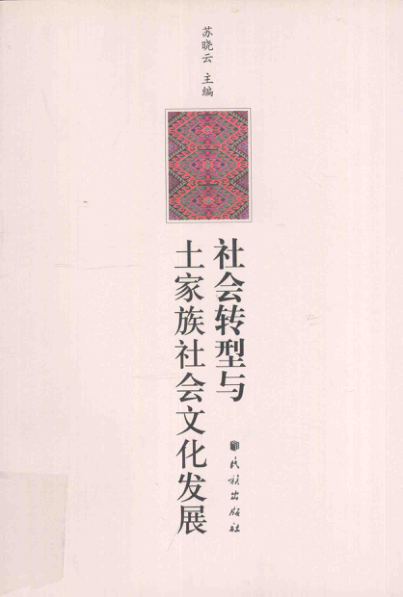 苏晓云 主编
社会转型与
土家族社会文化发展
民族出版社